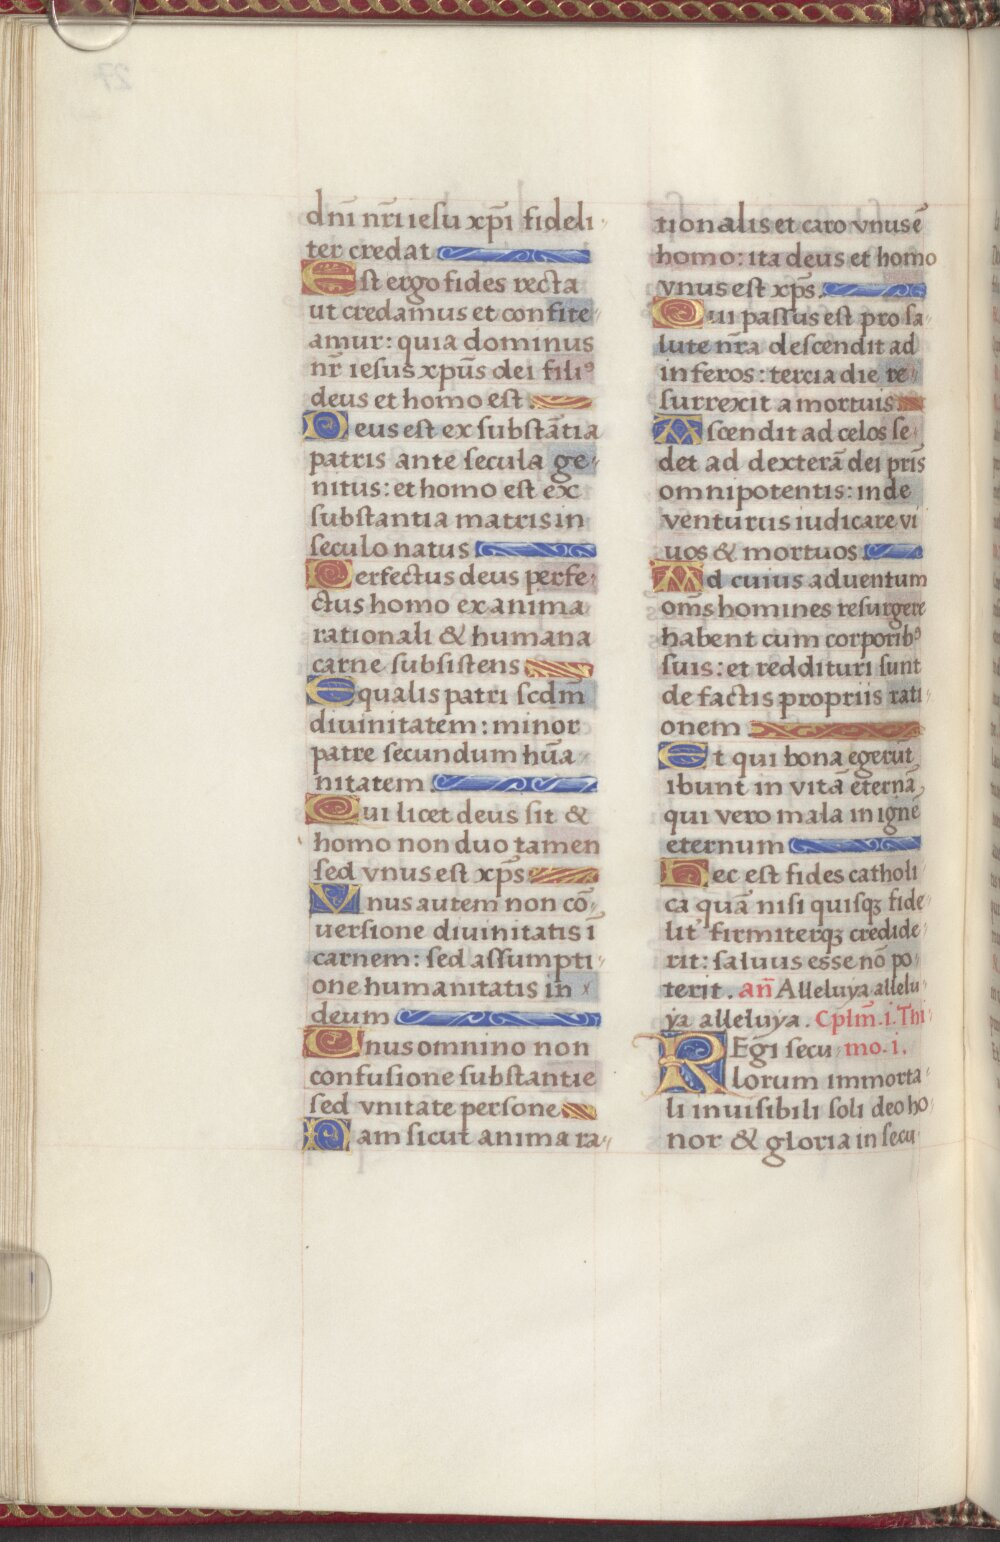 dnī nr̄i iesu xp̄i fideli
ter credat
Est ergo fides recta
ut credamus et confite
amur: quia dominus
nr̄ iesus xpūs dei filiꝰ
deus et homo est.
Deus est ex substātia
patris ante secula ge
nitus: et homo est ex
substantia matris in
seculo natus
Perfectus deus perfe
ctus homo ex anima
rationali & humana
carne subsistens
Equalis patri scdm̄
diuinitatem: minor
patre secundum hūa
nitatem.
Qui licet deus sit &
homo non duo tamen
sed vnus est xp̄s
Vnus autem non cō
uersione diuinitatis ī
carnem: sed assumpti
one humanitatis in
deum
Vnus omnino non
confusione substantie
sed vnitate persone
Nam sicut anima ra
tionalis et caro vnus ē
homo: ita deus et homo
vnus est xp̄s.
Qui passus est pro sa
lute nr̄a descendit ad
inferos: tercia die re
surrexit a mortuis.
Ascendit ad celos se
det ad dexterā dei pr̄is
omnipotentis: inde
venturus iudicare vi
uos & mortuos
Ad cuius aduentum
om̄s homines resurgere
habent cum corporibꝰ
suis: et reddituri sunt
de factis propriis rati
onem
Et qui bona egerūt
ibunt in vitā eternā
qui vero mala in ignē
eternum
Hec est fides catholi
ca quā nisi quisqꝫ fide
lit' firmiterqꝫ credide
rit: saluus esse nō po
terit. an̄ Alleluya allelu
ya alleluya. Cplm̄. i. Thi
REgi secu mo. i.
lorum immorta
li inuisibili soli deo ho
nor & gloria in secu
27